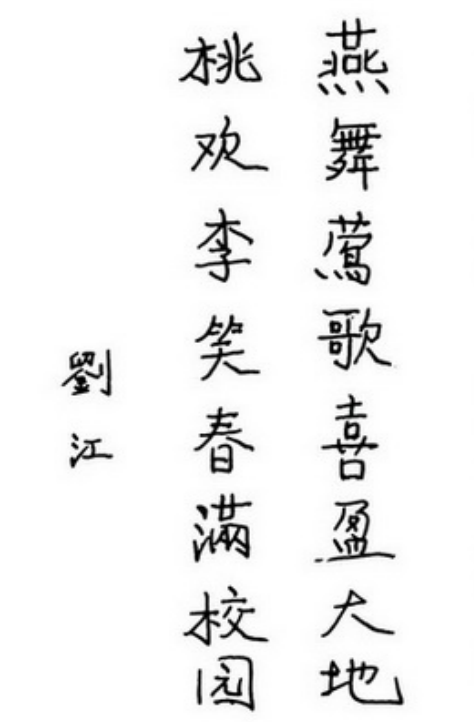 燕舞莺歌喜盈大地
桃欢李笑春满校园
劉江